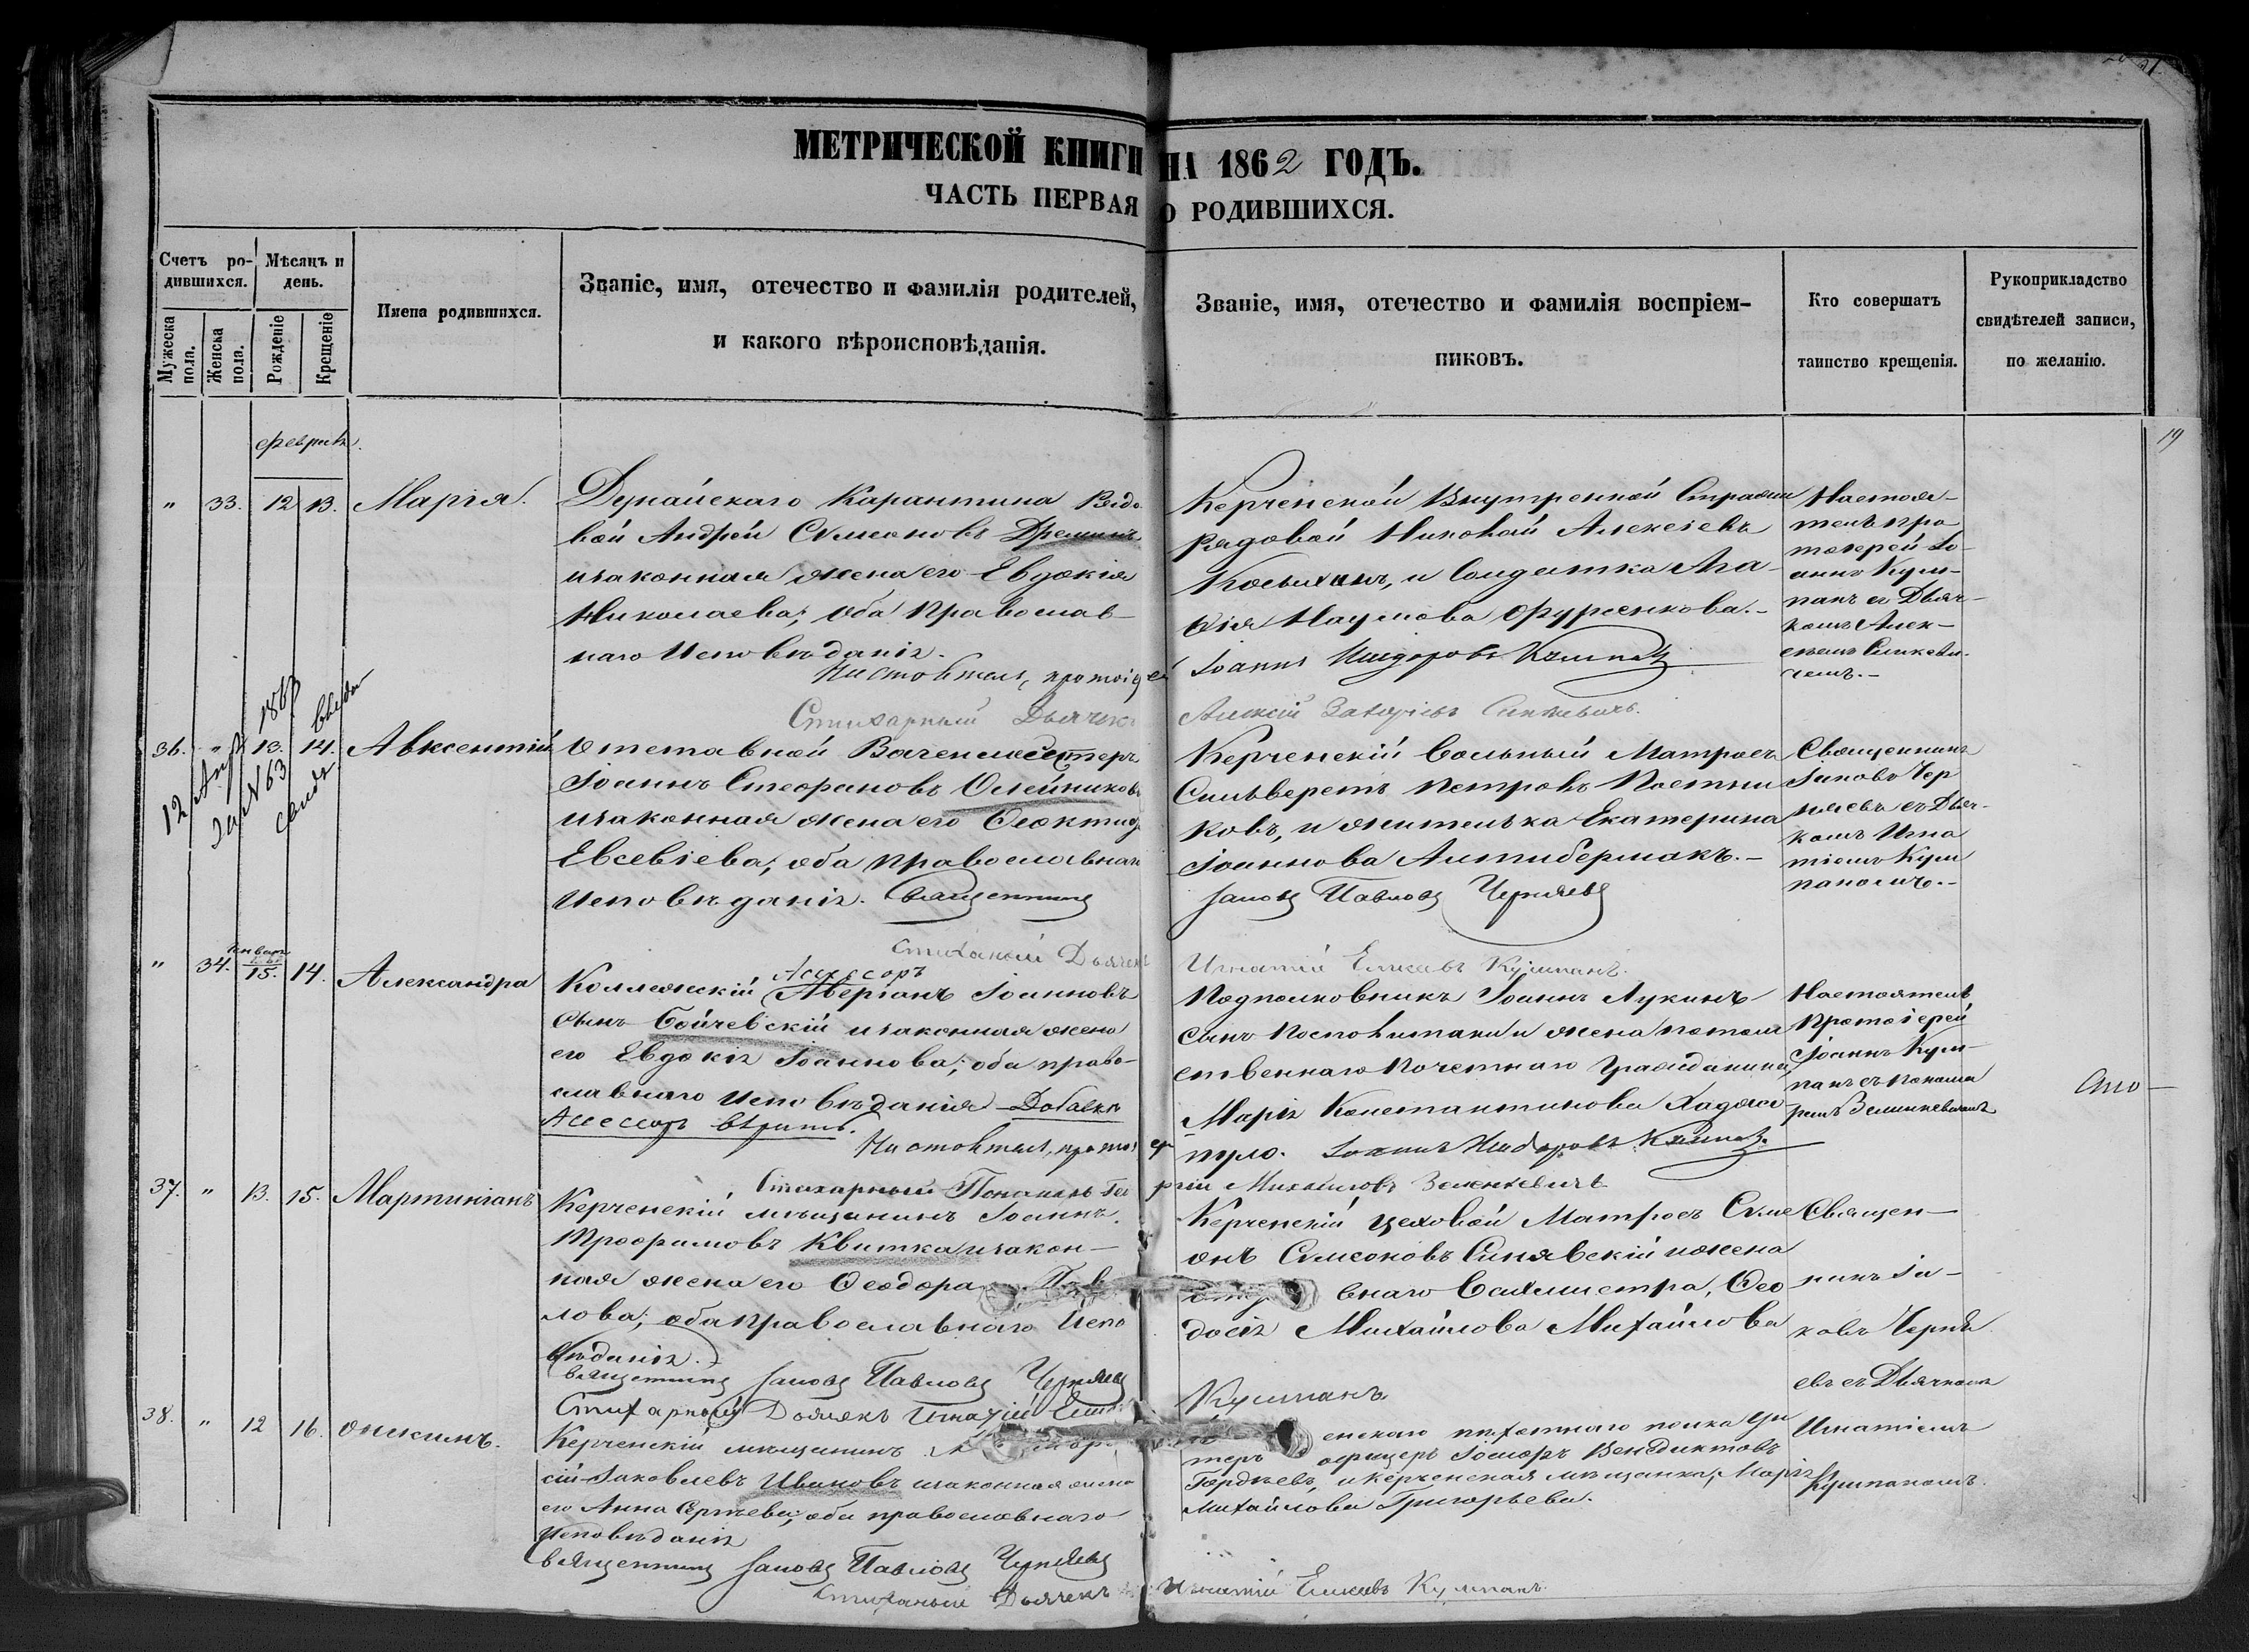 МЕТРИЧЕСКОЙ КНИГИ НА 1862 ГОДЪ.
ЧАСТЬ ПЕРВАЯ О РОДИВШИХСЯ.
Счетъ родившихся.
Мужеска пола.
Женска пола.
Мѣсяцъ и день.
Рожденіе
Крещеніе
Имена родившихся.
Званіе, имя, отечество и фамилія родителей,
и какого вѣроисповѣданія.
Званіе, имя, отечество и фамилія воспріем-
никовъ.
Кто совершатъ
таинство крещенія.
Рукоприкладство
свидѣтелей записи,
по желанію.
19
" 33. 12 13. Марія.
Дунайскаго Карантина Рядо
вой Андрей Симеоновъ
изаконная жена его Евдокія
Николаева; оба Православ-
наго Исповѣданія.
Настоятель, протоіерей
Стихарный Дьячекъ
Керченской Внутренной Стражи
Рядовой Николай Алексіевъ
и Солдатка Ага-
ѳія Наумова Фурсенкова.-
Іоаннъ Исидоровъ Кушпак
Алексій
Настоя-
тель про
тоіерей Іо-
аннъ Куш-
панъ съ Дьяч-
комъ Алек-
36. " 13. 14. Авксентій
Отставной
Іоаннъ Стефановъ Олейниковъ
изаконная жена его Ѳеоктиста
Евсевіева; оба православнаго
Исповѣданія. Священникъ
Стихарный Дьячекъ
Керченскій вольный Матросъ
Сильверстъ Петровъ Постни
ковъ, и жителька Екатерина
Іоаннова
Іаковъ Павловъ Черняевъ
Игнатій Елисеевъ Кушпанъ.
Священникъ
Іаковъ Чер
няевъ съ Дьяч-
комъ Игна
тіемъ Куш
паномъ.-
" 34. январь 15. 14. Александра
Ассесоръ
Коллежскій Аверіанъ Іоанновъ
сынъ Бойчевскій изаконная жена
его Евдокія Іоаннова; оба право-
славнаго Исповѣданія Добавка
Ассесоръ вѣрить.
Настоятель, протоіерей
Подполковникъ Іоаннъ Лукинъ
сынъ Посполитаки и жена потом
ственнаго Почетнаго Гражданина,
Марія Константинова Хаджо
пуло. Іоаннъ Исидоровъ
Настоятель
Протоіерей
Іоаннъ Куш-
панъ съ понома
ремъ Зенкевичемъ
37. " 13. 15. Мартиніанъ
Стихарный Пономарь Георгій Михайловъ Зенкевичъ
Керченскій мѣщанинъ Іоаннъ
Трофимовъ Квитка изакон-
ная жена его Ѳеодора Пав
лова; оба православнаго Испо
вѣданія.
Священникъ Іаковъ Павловъ Черняевъ
Стихарный Дьячекъ Игнатій
Керченскій цеховой Матросъ Симе
онъ Симеоновъ Синявскій и жена
внаго Вахмистра, Ѳео
досія Михайлова Михайлова
Кушпанъ
Священ-
никъ Іа-
ковъ Черня
евъ съ Дьячкомъ
Игнатіемъ
Кушпаномъ.
38. " 12 16. Онисимъ.
Керченскій мѣщанинъ
сій Іаковлевъ Ивановъ изаконная жена
его Анна Сергѣева; оба православнаго
Исповѣданія
Священникъ Іаковъ Павловъ Черняевъ
Стихарный Дьячекъ Игнатій Елисеевъ Кушпанъ.
пѣхотнаго полка Ун
теръ офицеръ Венедиктовъ
Гордѣевъ, и Керченская мѣщанка, Марія
Михайлова Григорьева.